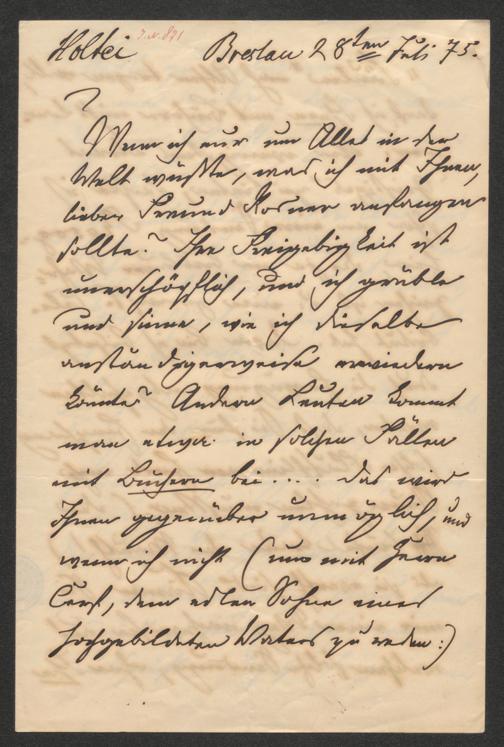 Holtei J.N. 891 Breslau 28ten Juli 75.
Wenn ich nur um Alles in der
Welt wüßte, was ich mit Ihnen,
lieber Freund Rosner anfangen
sollte? Ihre Freigebigkeit ist
unerschöpflich, und ich grüble
und sinne, wie ich dieselbe
anständigerweise erwiedern
könnte? Andern Leuten kommt
man etwa in solchen Fällen
mit Büchern bei.... das wird
Ihnen gegenüber unmöglich, und
wenn ich nicht (um mit Herrn
Cerf, dem edlen Sohne eines
hochgebildeten Vaters zu reden:)